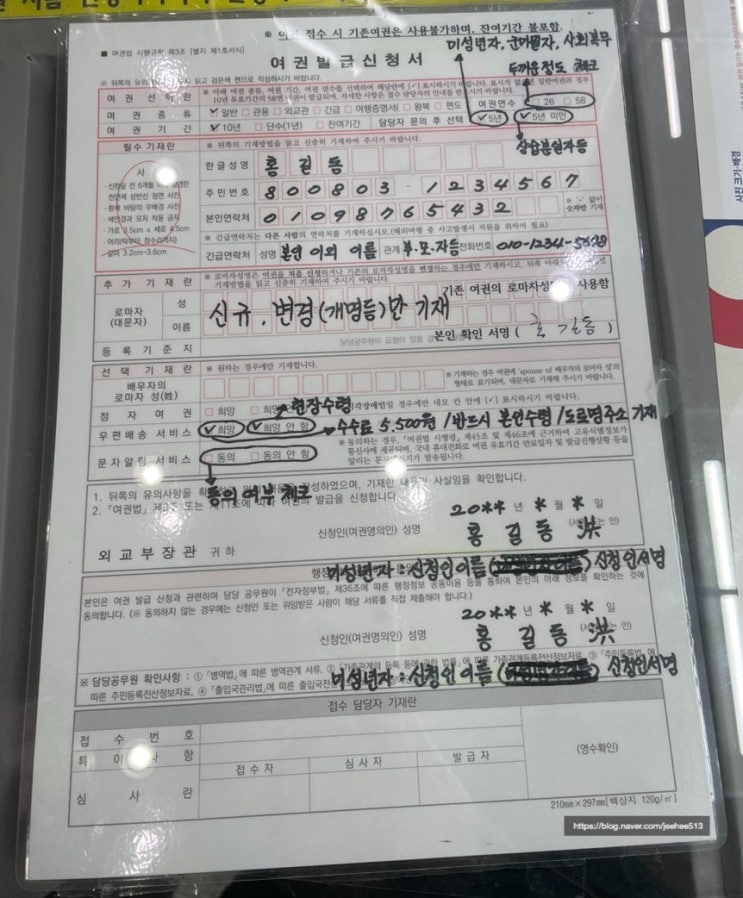 ※ 여권 접수 시 기존여권은 사용불가하며, 잔여기간 불포함.
■ 여권법 시행규칙 제3조 [별지 제1호서식]
미성년자, 군미필자, 사회복무
여권발급신청서
두꺼운정도 체크
※ 뒤쪽의 유의사항을 읽고 검은색 펜으로 작성하시기 바랍니다.
여권 선택란
※ 아래 여권 종류, 여권 기간, 여권 면수를 선택하여 해당란에 [✓] 표시하시기 바랍니다.
여권 종류 ✓일반 □ 관용 □ 외교관 □ 긴급 □ 여행증명서(□ 왕복 □ 편도) 여권면수 □ 26 □ 58
여권 기간 ✓10년 □ 단수(1년) □ 잔여기간 담당자 문의 후 선택 ✓5년 ✓5년 미만
상습분실자등
필수 기재란 ※ 뒤쪽의 기재방법을 읽고 신중히 기재하여 주시기 바랍니다.
사
한글성명 홍 길 동
주민번호 800803 - 1234567
본인연락처 01098765432
※ '-' 없이 숫자만 기재
· 신청일 전 6개월
천연색 상반신 정면 사진
· 흰색 바탕의 무배경 사진
· 색안경과 모자 착용 금지
· 가로 3.5cm x 세로 4.5cm
· 머리(턱부터 정수리까지)
길이 3.2cm~3.6cm
※ 긴급연락처는 다른 사람의 연락처를 기재하십시오.(해외여행 중 사고발생시 지원을 위하여 필요)
긴급연락처 성명 본인 이외 이름 관계 부·모·자등 전화번호 010-1234-5678
추가 기재란
기존 여권의 로마자성 사용함
로마자 (대문자) 성
이름
신규, 변경(개명등)만 기재
본인 확인 서명 ( 홍길동 )
등록기준지 담당공무원의 요청이 있을
선택 기재란 ※ 원하는 경우에만 기재합니다.
배우자의 로마자 성(姓)
※ 기재하는 경우 여권에 'spouse of 배우자의 로마자 성'의 형태로 표기되며, 대문자로 기재해 주시기 바랍니다.
현장수령
점자여권 □ 희망 □ 희망
우편배송 서비스 ✓희망 ✓희망 안 함 수수료 5,500원 /반드시 본인수령 /도로명주소 기재
문자알림 서비스 □ 동의 □ 동의 안 함
※ 동의하는 경우, 「여권법 시행령」 제45조 및 제46조에 근거하여 고유식별정보가 통신사에 제공되며, 국내 휴대전화로 여권 유효기간 만료일자 및 발급진행상황 등을 알리는 문자메시지가 발송됩니다.
동의 여부 체크
1. 뒤쪽의 유의사항을 작성하였으며, 기재한 내용이 사실임을 확인합니다.
2. 「여권법」 제9조 또는 여권의 발급을 신청합니다.
20** 년 * 월 * 일
신청인(여권명의인) 성명 홍 길 동 洪
외교부장관 귀하
미성년자 : 신청인이름 신청인서명
본인은 여권 발급 신청과 관련하여 담당 공무원이 「전자정부법」 제36조에 따른 행정정보 공동이용 등을 통하여 본인의 아래 정보를 확인하는 것에
동의합니다. (※ 동의하지 않는 경우에는 신청인 또는 위임받은 사람이 해당 서류를 직접 제출해야 합니다.)
20** 년 * 월 * 일
신청인(여권명의인) 성명 홍 길 동 洪
※ 담당공무원 확인사항 : ① 「병역법」에 따른 병역관계 서류,
미성년자 : 신청인이름 신청인서명
따른 주민등록전산정보자료, ④ 「출입국관리법」에 따른
접수 담당자 기재란
접수번호
특이사항
접수자 심사자 발급자
(영수확인)
심사란
210mm×297mm[백상지 120g/㎡]
https://blog.naver.com/jeehee513
사진 크기·배경